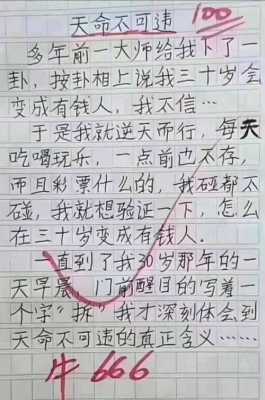 天命不可违 100
多年前一大师给我卜了一
卦，按卦相上说我三十岁会
变成有钱人，我不信…
于是我就逆天而行，每天
吃喝玩乐，一点前也不存，
而且彩票什么的，我碰都不
碰，我就想验证一下，怎么
在三十岁变成有钱人．
一直到了我30岁那年的一
天早晨，门前醒目的写着一
个字“拆”我才深刻体会到
天命不可违的真正含义……
牛666